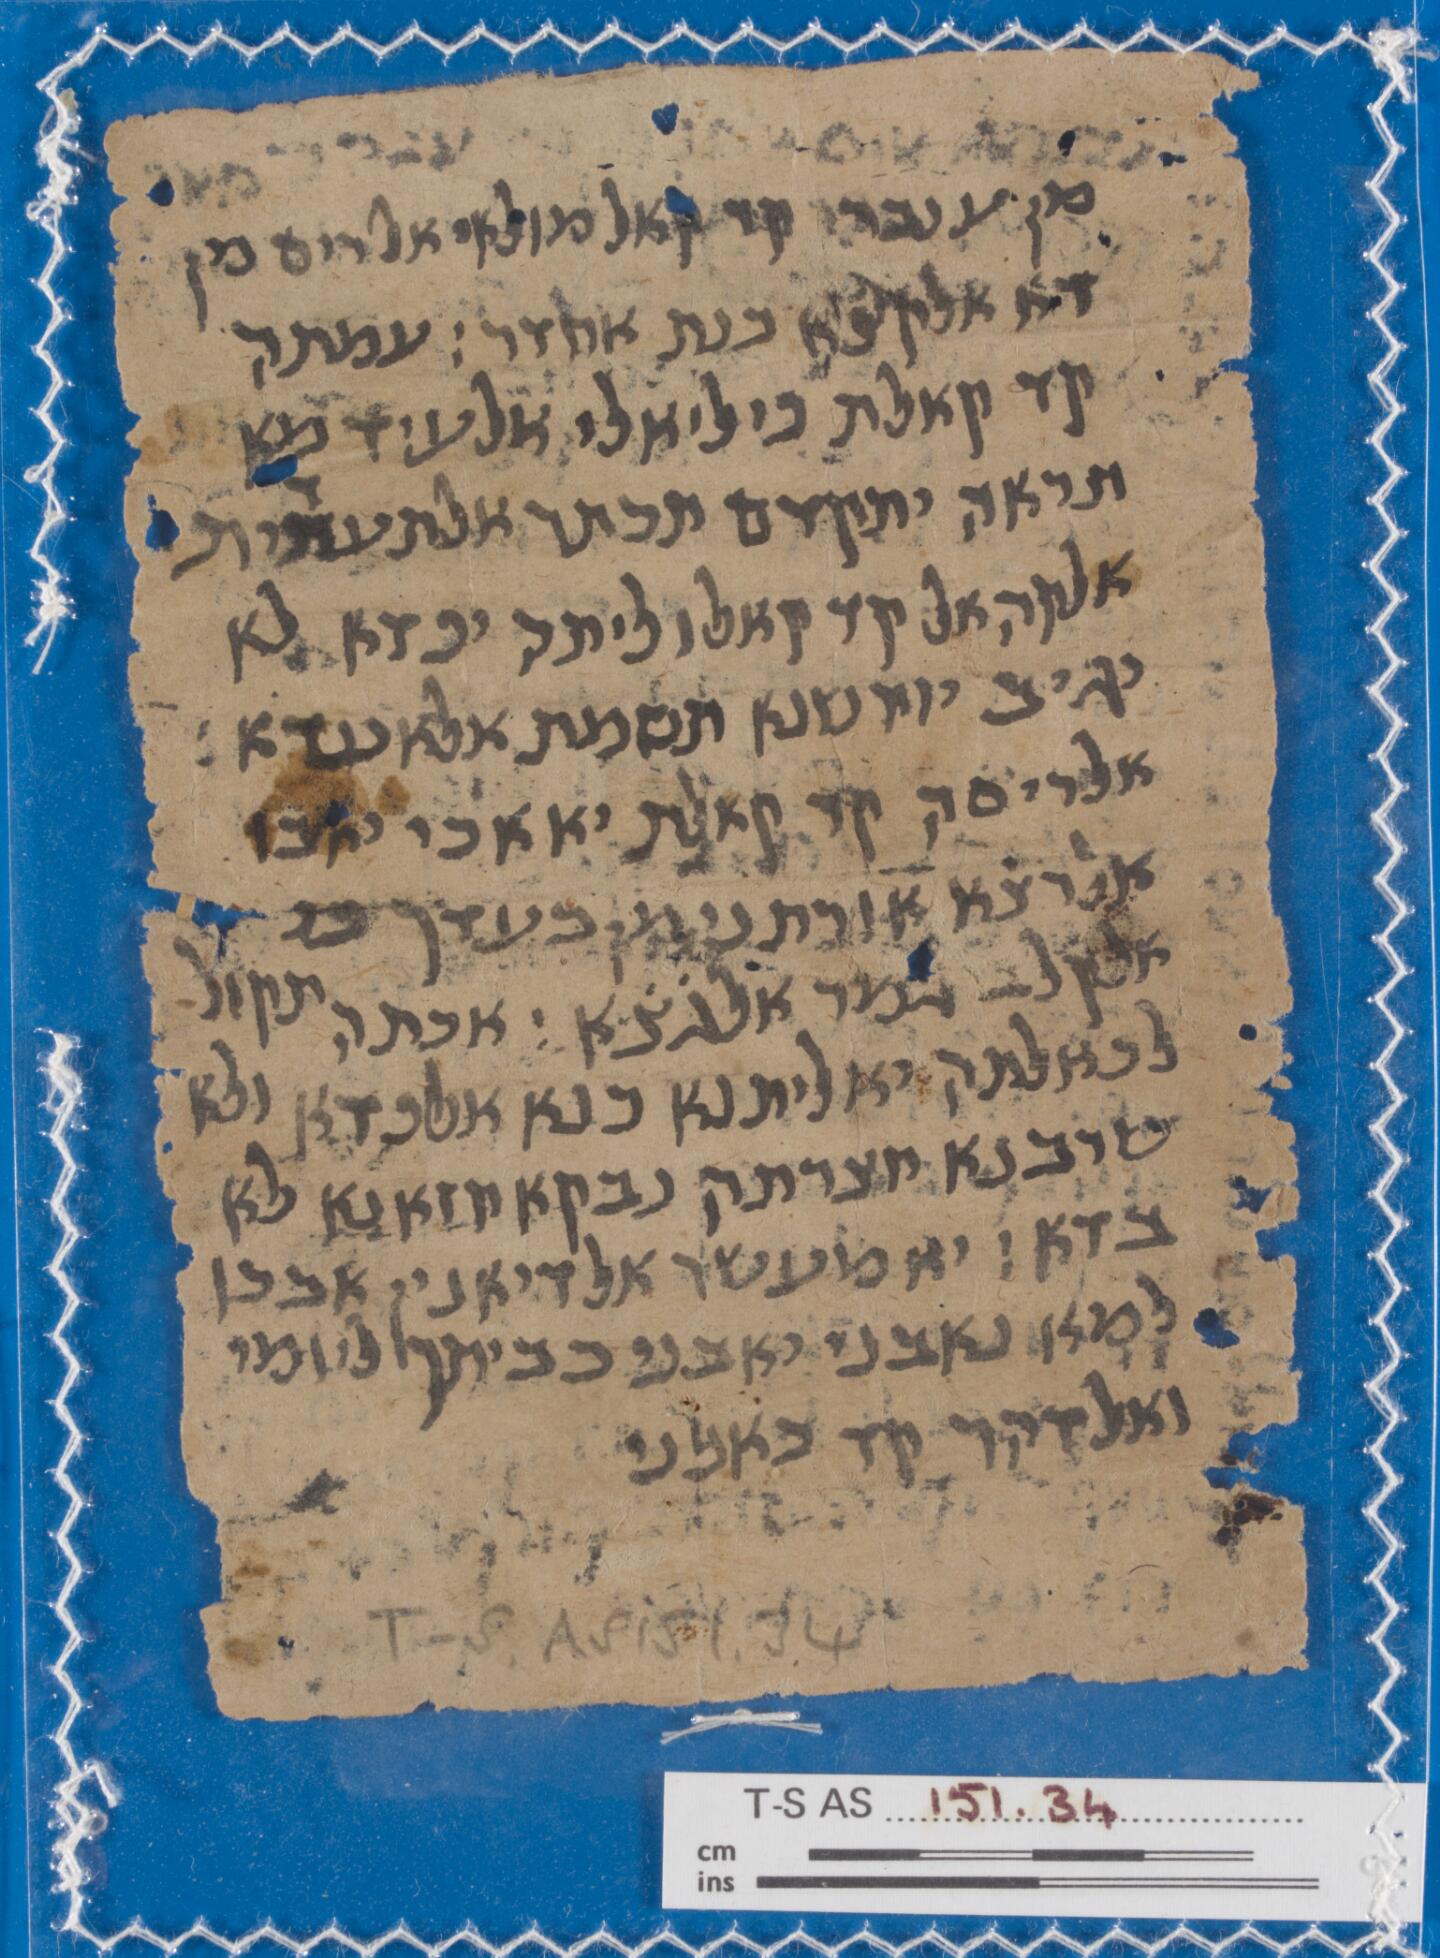 מן ענברי קד קאל מולאי אלריס מן
דא אלקצ̇א כנת אחדר : עמתה
קד קאלת כי ליאלי אלעיד מא
תראה יתקדם תכתר אלתעדית
אלקהאל קד קאלו ליתה יכדא לא
יגיב יוחשנא תשמת אלאעדא :
אלריסה קד קאלת יא אכי יאבו
אלרצ̇א אורתני מן בעדך
אלקלב גמר אלגצ̇א : אכתה תקול
לכאלתה יא ליתנא כנא אלכדא ולא
שרבנא חצרתה נבקא חזאנא לא
בדא : יא מעשר אלדיאנין אבכו
למא נאבני יאבני כביתך ליומי
ואלדהר קד כאנני
T-S AS 151.34
T-S AS 151.34
cm
ins